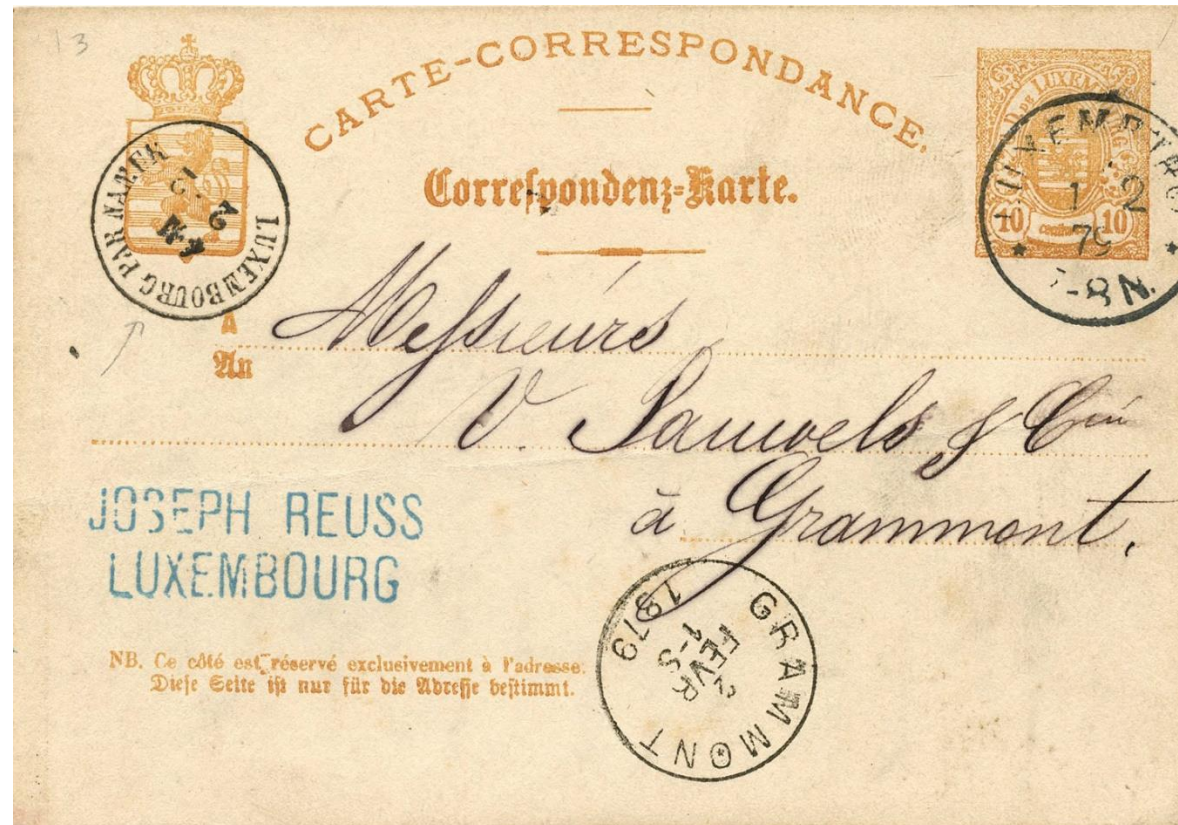 13
CARTE-CORRESPONDANCE.
Correspondenz=Karte.
G D DE LUXEMBOURG
10 centimes 10
1 2
79
-8 N.
LUXEMBOURG PAR NAMUR
2
4-M
A
An
Messieurs
V. Pauwels & Cie
à Grammont.
JOSEPH REUSS
LUXEMBOURG
GRAMMONT
1-S
2
FEVR
1879
NB. Ce côté est réservé exclusivement à l'adresse.
Diese Seite ist nur für die Adresse bestimmt.